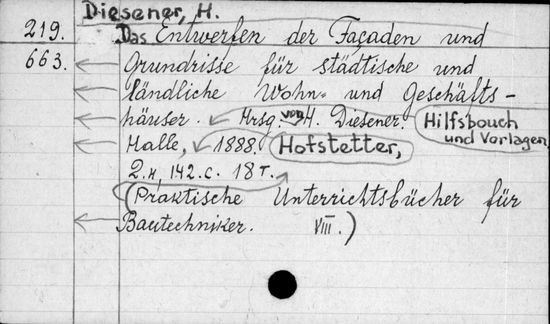 Diesener, H.
219. Das Entwerfen der Façaden und
663. Grundrisse für städtische und
ländliche Wohn- und Geschäfts-
häuser. Hrsg. von H. Diesener. Hilfsbouch und Vorlagen
Halle, 1888. Hofstetter,
2.H, 142.C. 18 T.
(Praktische Unterrichtsbücher für
Bautechniker. VIII.)